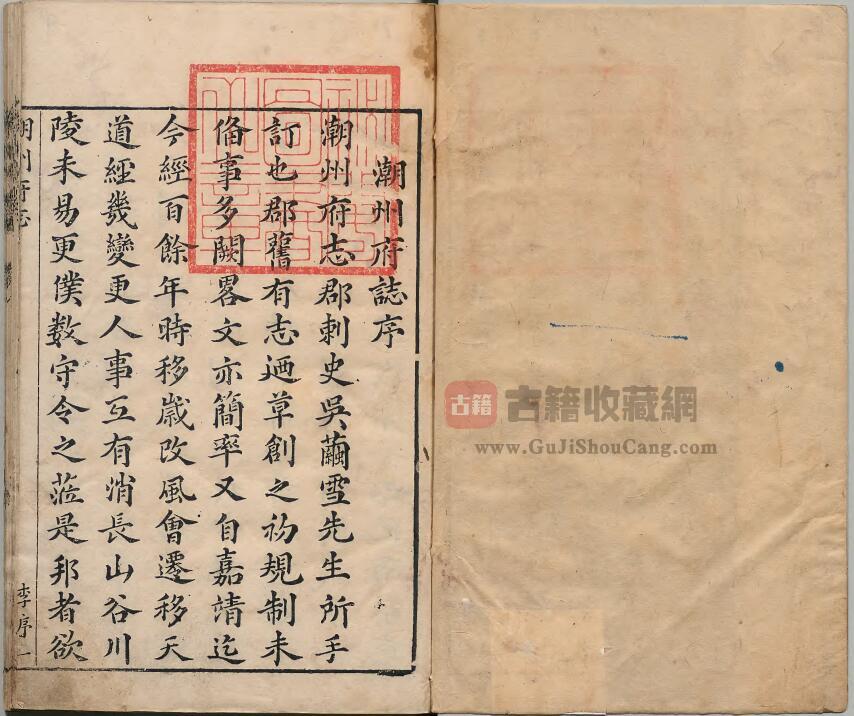 潮州府誌序
潮州府志郡刺史吳繭雪先生所手
訂也郡舊有志迺草創之初規制未
俻事多闕畧文亦簡率又自嘉靖迄
今經百餘年時移歲改風會遷移天
道經幾變更人事互有消長山谷川
陵未易更僕数守令之蒞是邦者欲
潮州府志
李序一
古籍 古籍收藏網
www.GuJiShouCang.com